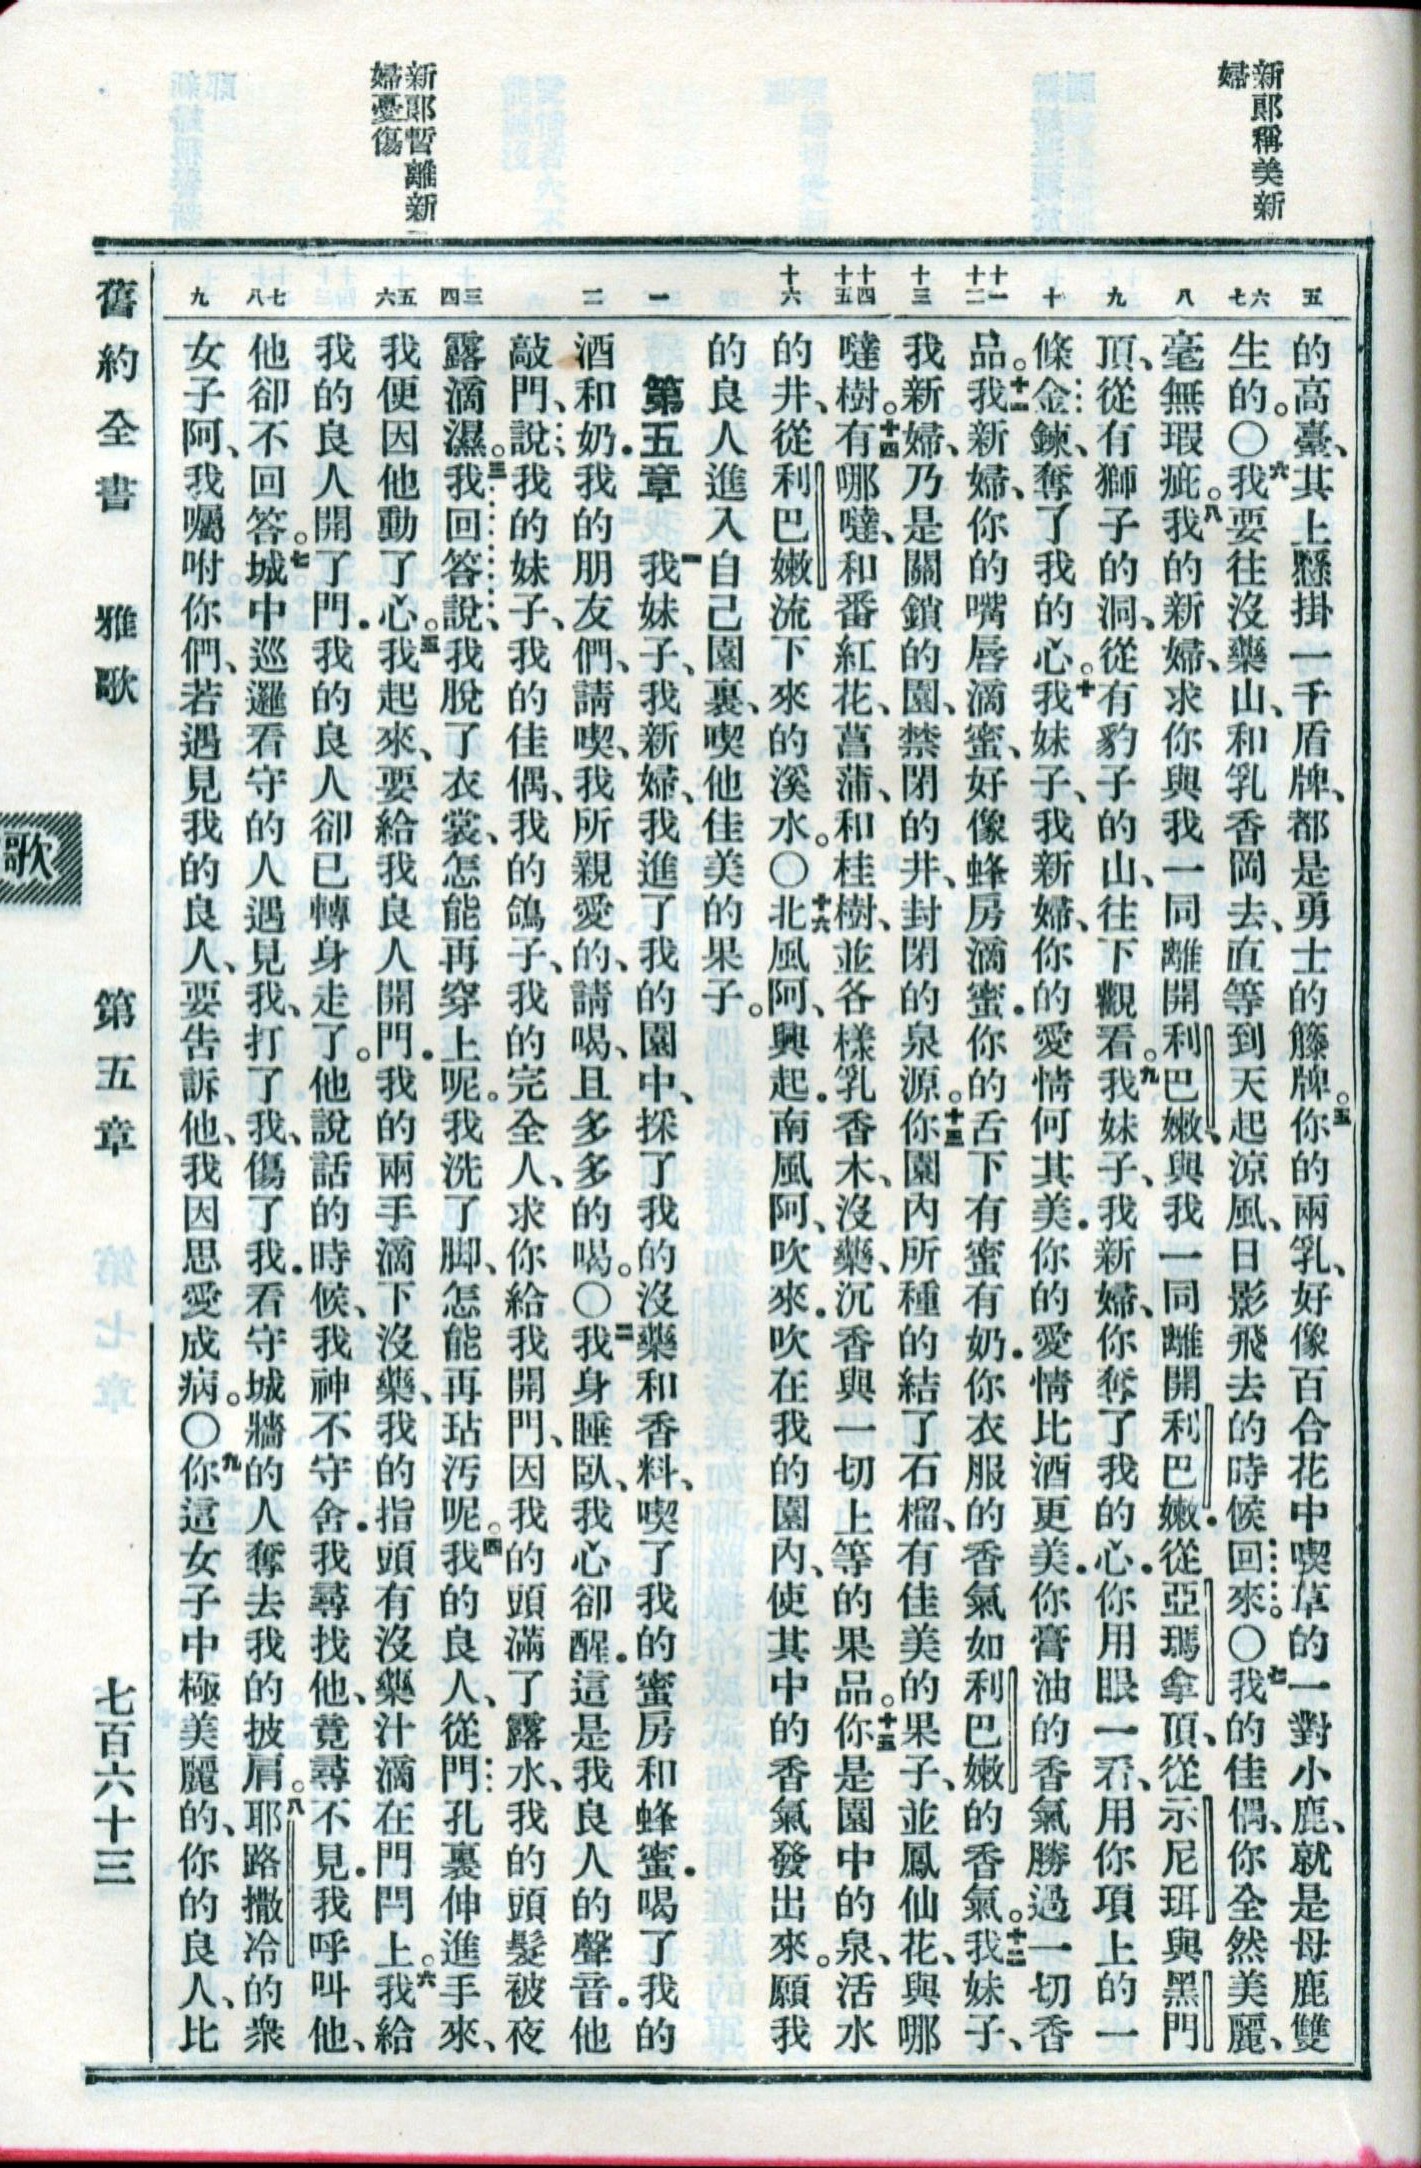 新郞稱美新
婦
新郞暫離新
婦憂傷
五
六
七
八
九
十
十一
十二
十三
十四
十五
十六
一
二
三
四
五
六
七
八
九
的高臺、其上懸掛一千盾牌、都是勇士的籐牌。五你的兩乳、好像百合花中喫草的一對小鹿、就是母鹿雙
生的。〇六我要往沒藥山、和乳香岡去、直等到天起涼風、日影飛去的時候回來。〇七我的佳偶、你全然美麗、
毫無瑕疵。八我的新婦、求你與我一同離開利巴嫩、與我一同離開利巴嫩．從亞瑪拿頂、從示尼珥與黑門
頂、從有獅子的洞、從有豹子的山、往下觀看。九我妹子、我新婦、你奪了我的心．你用眼一看、用你項上的一
條金鍊、奪了我的心。十我妹子、我新婦、你的愛情何其美．你的愛情比酒更美．你膏油的香氣勝過一切香
品。十一我新婦、你的嘴唇滴蜜、好像蜂房滴蜜．你的舌下有蜜有奶．你衣服的香氣如利巴嫩的香氣。十二我妹子、
我新婦、乃是關鎖的園、禁閉的井、封閉的泉源。十三你園內所種的結了石榴、有佳美的果子、並鳳仙花、與哪
噠樹。十四有哪噠、和番紅花、菖蒲、和桂樹、並各樣乳香木、沒藥、沉香與一切上等的果品。十五你是園中的泉、活水
的井、從利巴嫩流下來的溪水。〇十六北風阿、興起．南風阿、吹來．吹在我的園內、使其中的香氣發出來。願我
的良人進入自己園裏、喫他佳美的果子。
第五章 一我妹子、我新婦、我進了我的園中、採了我的沒藥和香料、喫了我的蜜房和蜂蜜．喝了我的
酒和奶．我的朋友們、請喫、我所親愛的、請喝、且多多的喝。〇二我身睡臥、我心卻醒．這是我良人的聲音．他
敲門、說、我的妹子、我的佳偶、我的鴿子、我的完全人、求你給我開門、因我的頭滿了露水、我的頭髮被夜
露滴濕。三我回答說、我脫了衣裳、怎能再穿上呢。我洗了脚、怎能再玷汚呢。四我的良人、從門孔裏伸進手來、
我便因他動了心。五我起來、要給我良人開門．我的兩手滴下沒藥、我的指頭有沒藥汁滴在門閂上。六我給
我的良人開了門．我的良人卻已轉身走了。他說話的時候、我神不守舍．我尋找他、竟尋不見．我呼叫他、
他卻不回答。七城中巡邏看守的人遇見我、打了我、傷了我．看守城牆的人奪去我的披肩。八耶路撒冷的衆
女子阿、我囑咐你們、若遇見我的良人、要告訴他、我因思愛成病。〇九你這女子中極美麗的、你的良人、比
舊約全書 雅歌 第五章 七百六十三
歌